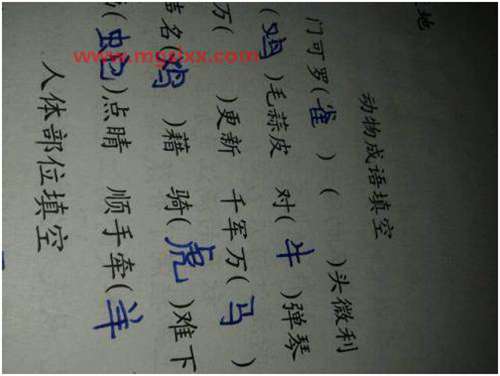 地
动物成语填空
门可罗(雀 ) ( )头微利
(鸡)毛蒜皮 对(牛)弹琴
万( )更新 千军万(马)
名(鸡)藉 骑(虎)难下
( )点睛 顺手牵(羊
人体部位填空